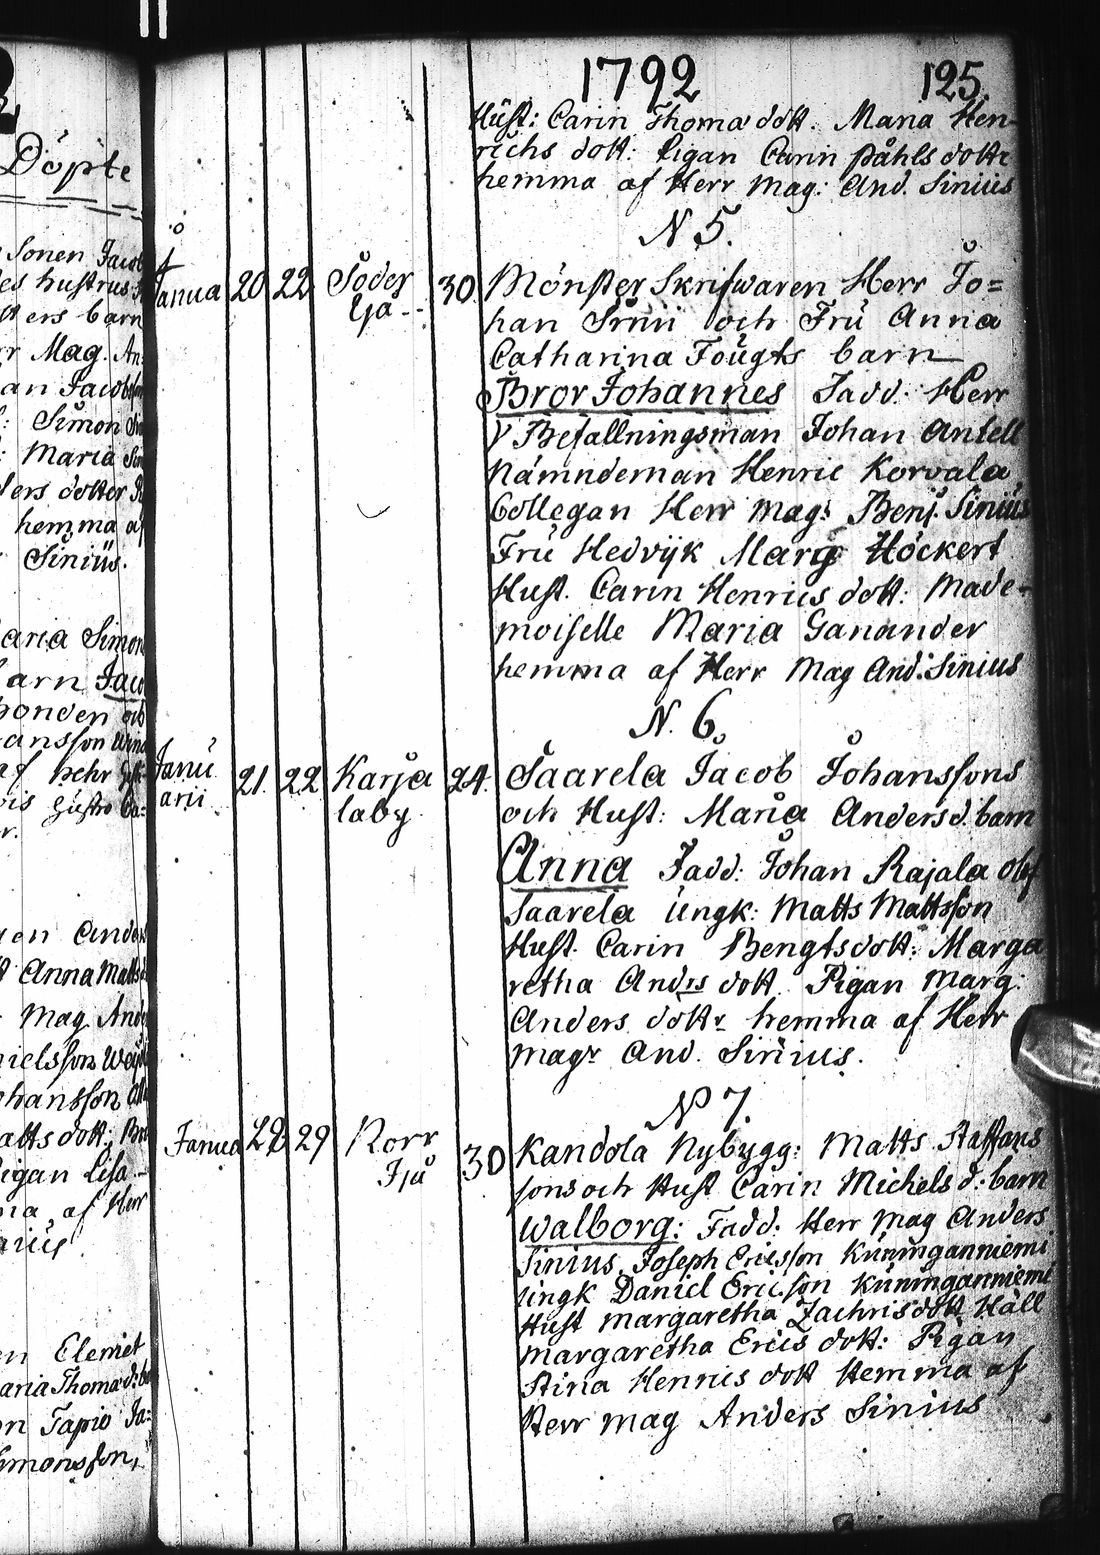 1792 125.
Hust: Carin Thoma dott. Maria Hen-
richs dott: Pigan Carin Påhls dottr
hemma af Herr Mag: And. Sinius
N 5.
Janua 20 22 Söder 30. Mönster Skrifwaren Herr Jo=
fjä- han och Fru Anna
Catharina Fougts barn
Bror Johannes Fadd: Herr
Befallningsman Johan Antell
Nämndeman Henric Korvala
Collegan Herr Mag: Benj. Sinius
Fru Hedvijk Marg Höckert
Hust. Carin Henrics dott: Made-
moiselle Maria Ganander
hemma af Herr Mag And: Sinius
N. 6.
Janu 21. 22 Karja 24. Saarela Jacob Johanssons
arii laby. och Hust: Maria Anders d. barn
Anna Fadd: Johan Rajala Olof
Saarela ungk: Matts Mattsson
Hust. Carin Bengts dott: Marga
retha Andrs dott Pigan Marg:
Anders dottr hemma af Herr
Magr And. Sinius.
N 7.
Janua 28 29 Norr 30 Kandola Nybygg: Matts Staffans
Fjä sons och Hust Carin Michels d. barn
Walborg: Fadd: Herr Mag Anders
Sinius, Joseph Ericsson Kuninganniemi
ungk Daniel Ericsson Kuninganniemi
Hust Margaretha Zachris dott Häll
Margaretha Erics dott: Pigan
Stina Henrics dott Hemma af
Herr Mag Anders Sinius
Döpte
Sonen Jacob
hustrus
ers barn
Mag. An:
an Jacobson
Simon
Maria
ders dotter
hemma af
Sinius.
aria Simon
arn Jaco
bonden och
ansson
af
r.
Anders
Anna Matts
Mag And
nielsson
ohansson
atts dott;
Pigan Lisa-
ma af Herr
nius
en Elemet
aria Thoma d: ba
on Tapio Ja=
imonsson,